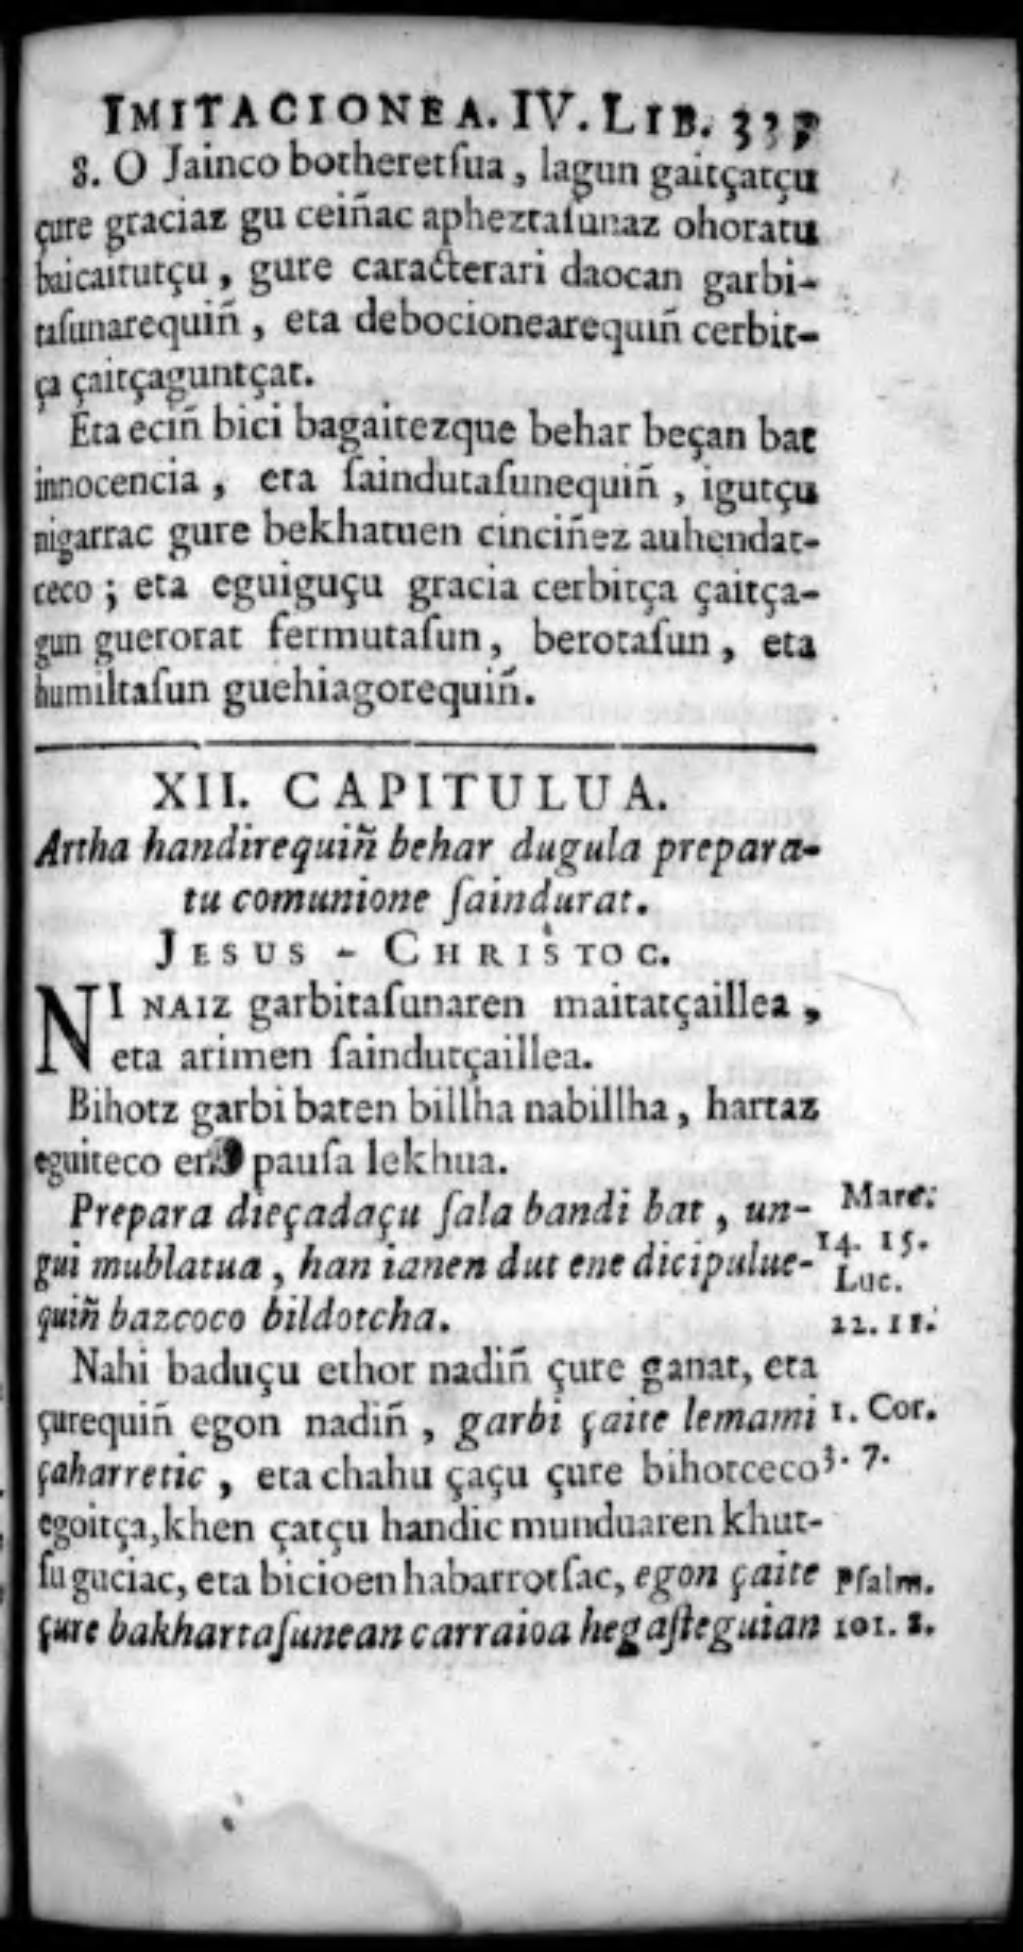 IMITACIONEA. IV. LIB.
8. O Jainco botheretſua, lagun gaitçatçu
çure graciaz gu ceiñac apheztaſunaz ohoratu
baicaitutçu, gure caracterari daocan garbi-
taſunarequiñ, eta debocionearequiñ cerbit-
ça çaitçaguntçat.
Eta eciñ bici bagaitezque behar beçan bat
innocencia, eta ſaindutaſunequiñ, igutçu
nigarrac gure bekhatuen cinciñez auhendat-
ceco; eta eguiguçu gracia cerbitça çaitça-
gun guerorat fermutaſun, berotaſun, eta
humiltaſun guehiagorequiñ.
XII. CAPITULUA.
Artha handirequiñ behar dugula prepara-
tu comunione ſaindurat.
JESUS - CHRISTOC.
NI NAIZ garbitaſunaren maitatçaillea,
eta arimen ſaindutçaillea.
Bihotz garbi baten billha nabillha, hartaz
eguiteco pauſa lekhua.
Prepara dieçadaçu ſala handi bat, un- Marc.
gui mublatua, han ianen dut ene dicipulue- 14. 15. Luc.
quiñ bazcoco bildotcha. 22. 11.
Nahi baduçu ethor nadiñ çure ganat, eta
çurequiñ egon nadiñ, garbi çaite lemami 1. Cor.
çaharretic, eta chahu çaçu çure bihotceco 3. 7.
egoitça, khen çatçu handic munduaren khut-
ſuguciac, eta bicioen habarrotſac, egon çaite Pſalm.
çure bakhartaſunean carraioa hegaſteguian 101. 8.